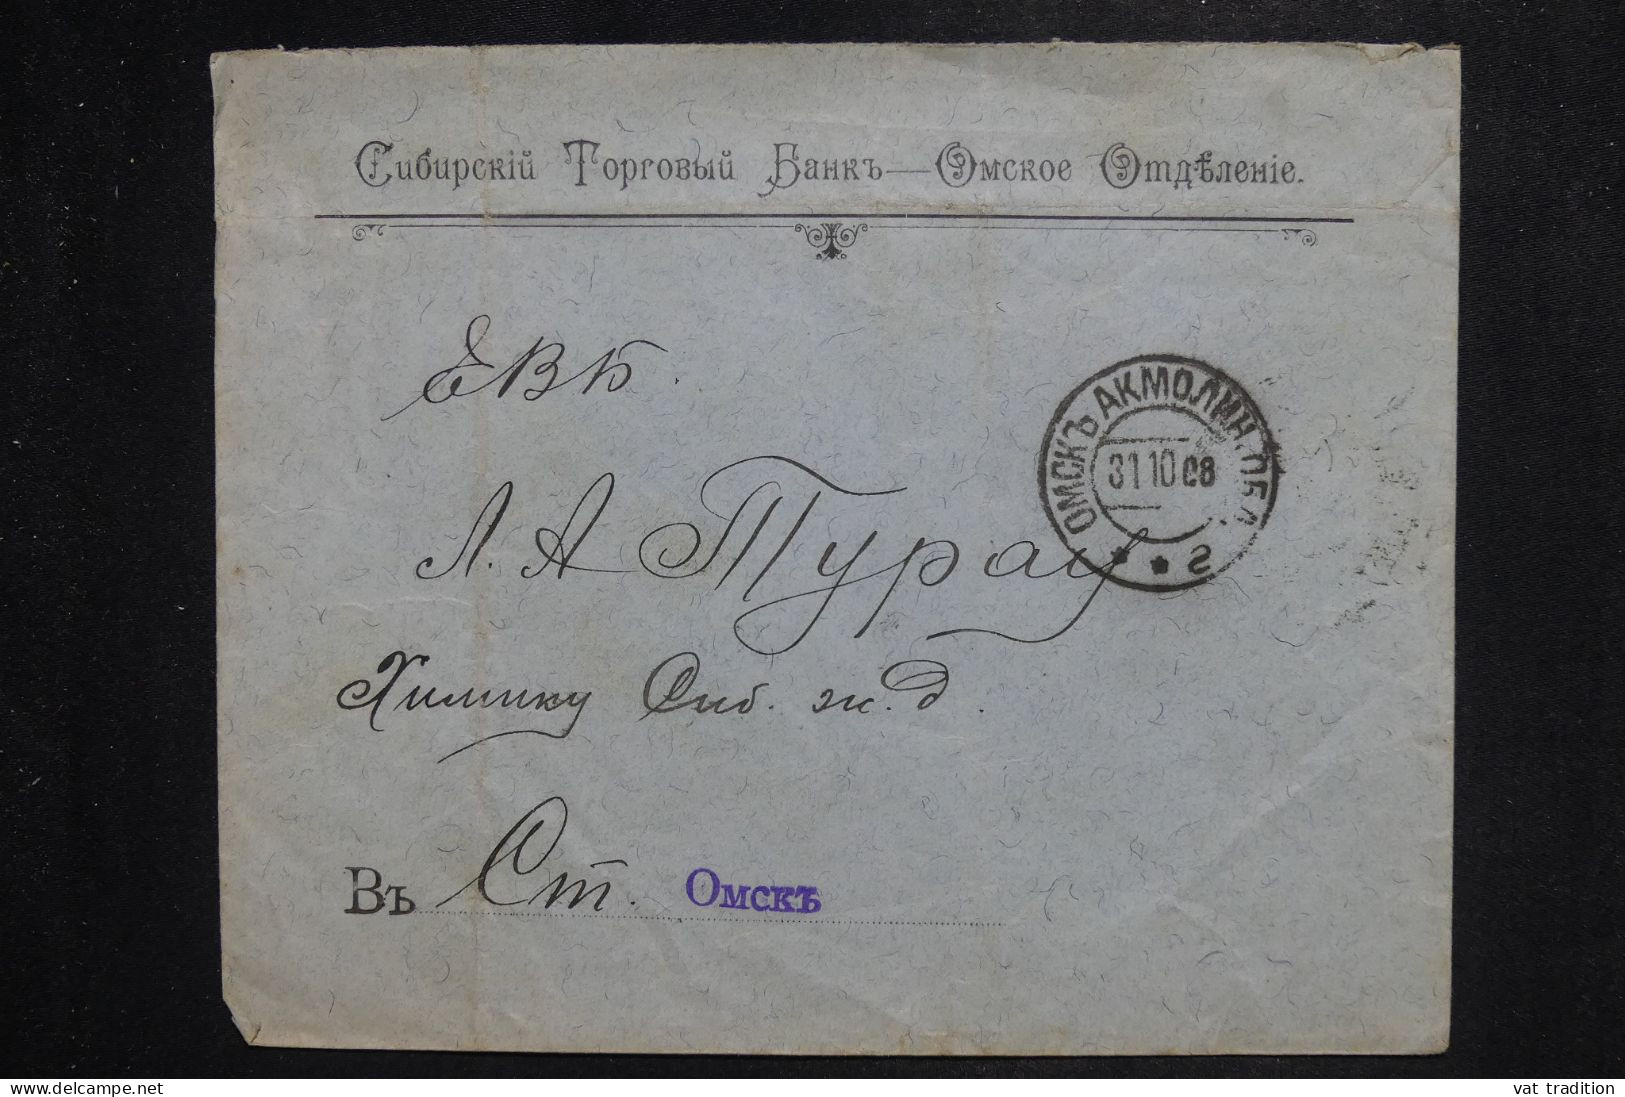 Сибирскій Торговый Банкъ—Омское Отдѣленіе.
ЕВБ.
ОМСКЪ АКМОЛИН. ОБЛ.
31 10 08
* * г
Л. А Турау
Химику Сиб. ж. д.
Въ Ст. Омскъ
www.delcampe.net
vat tradition